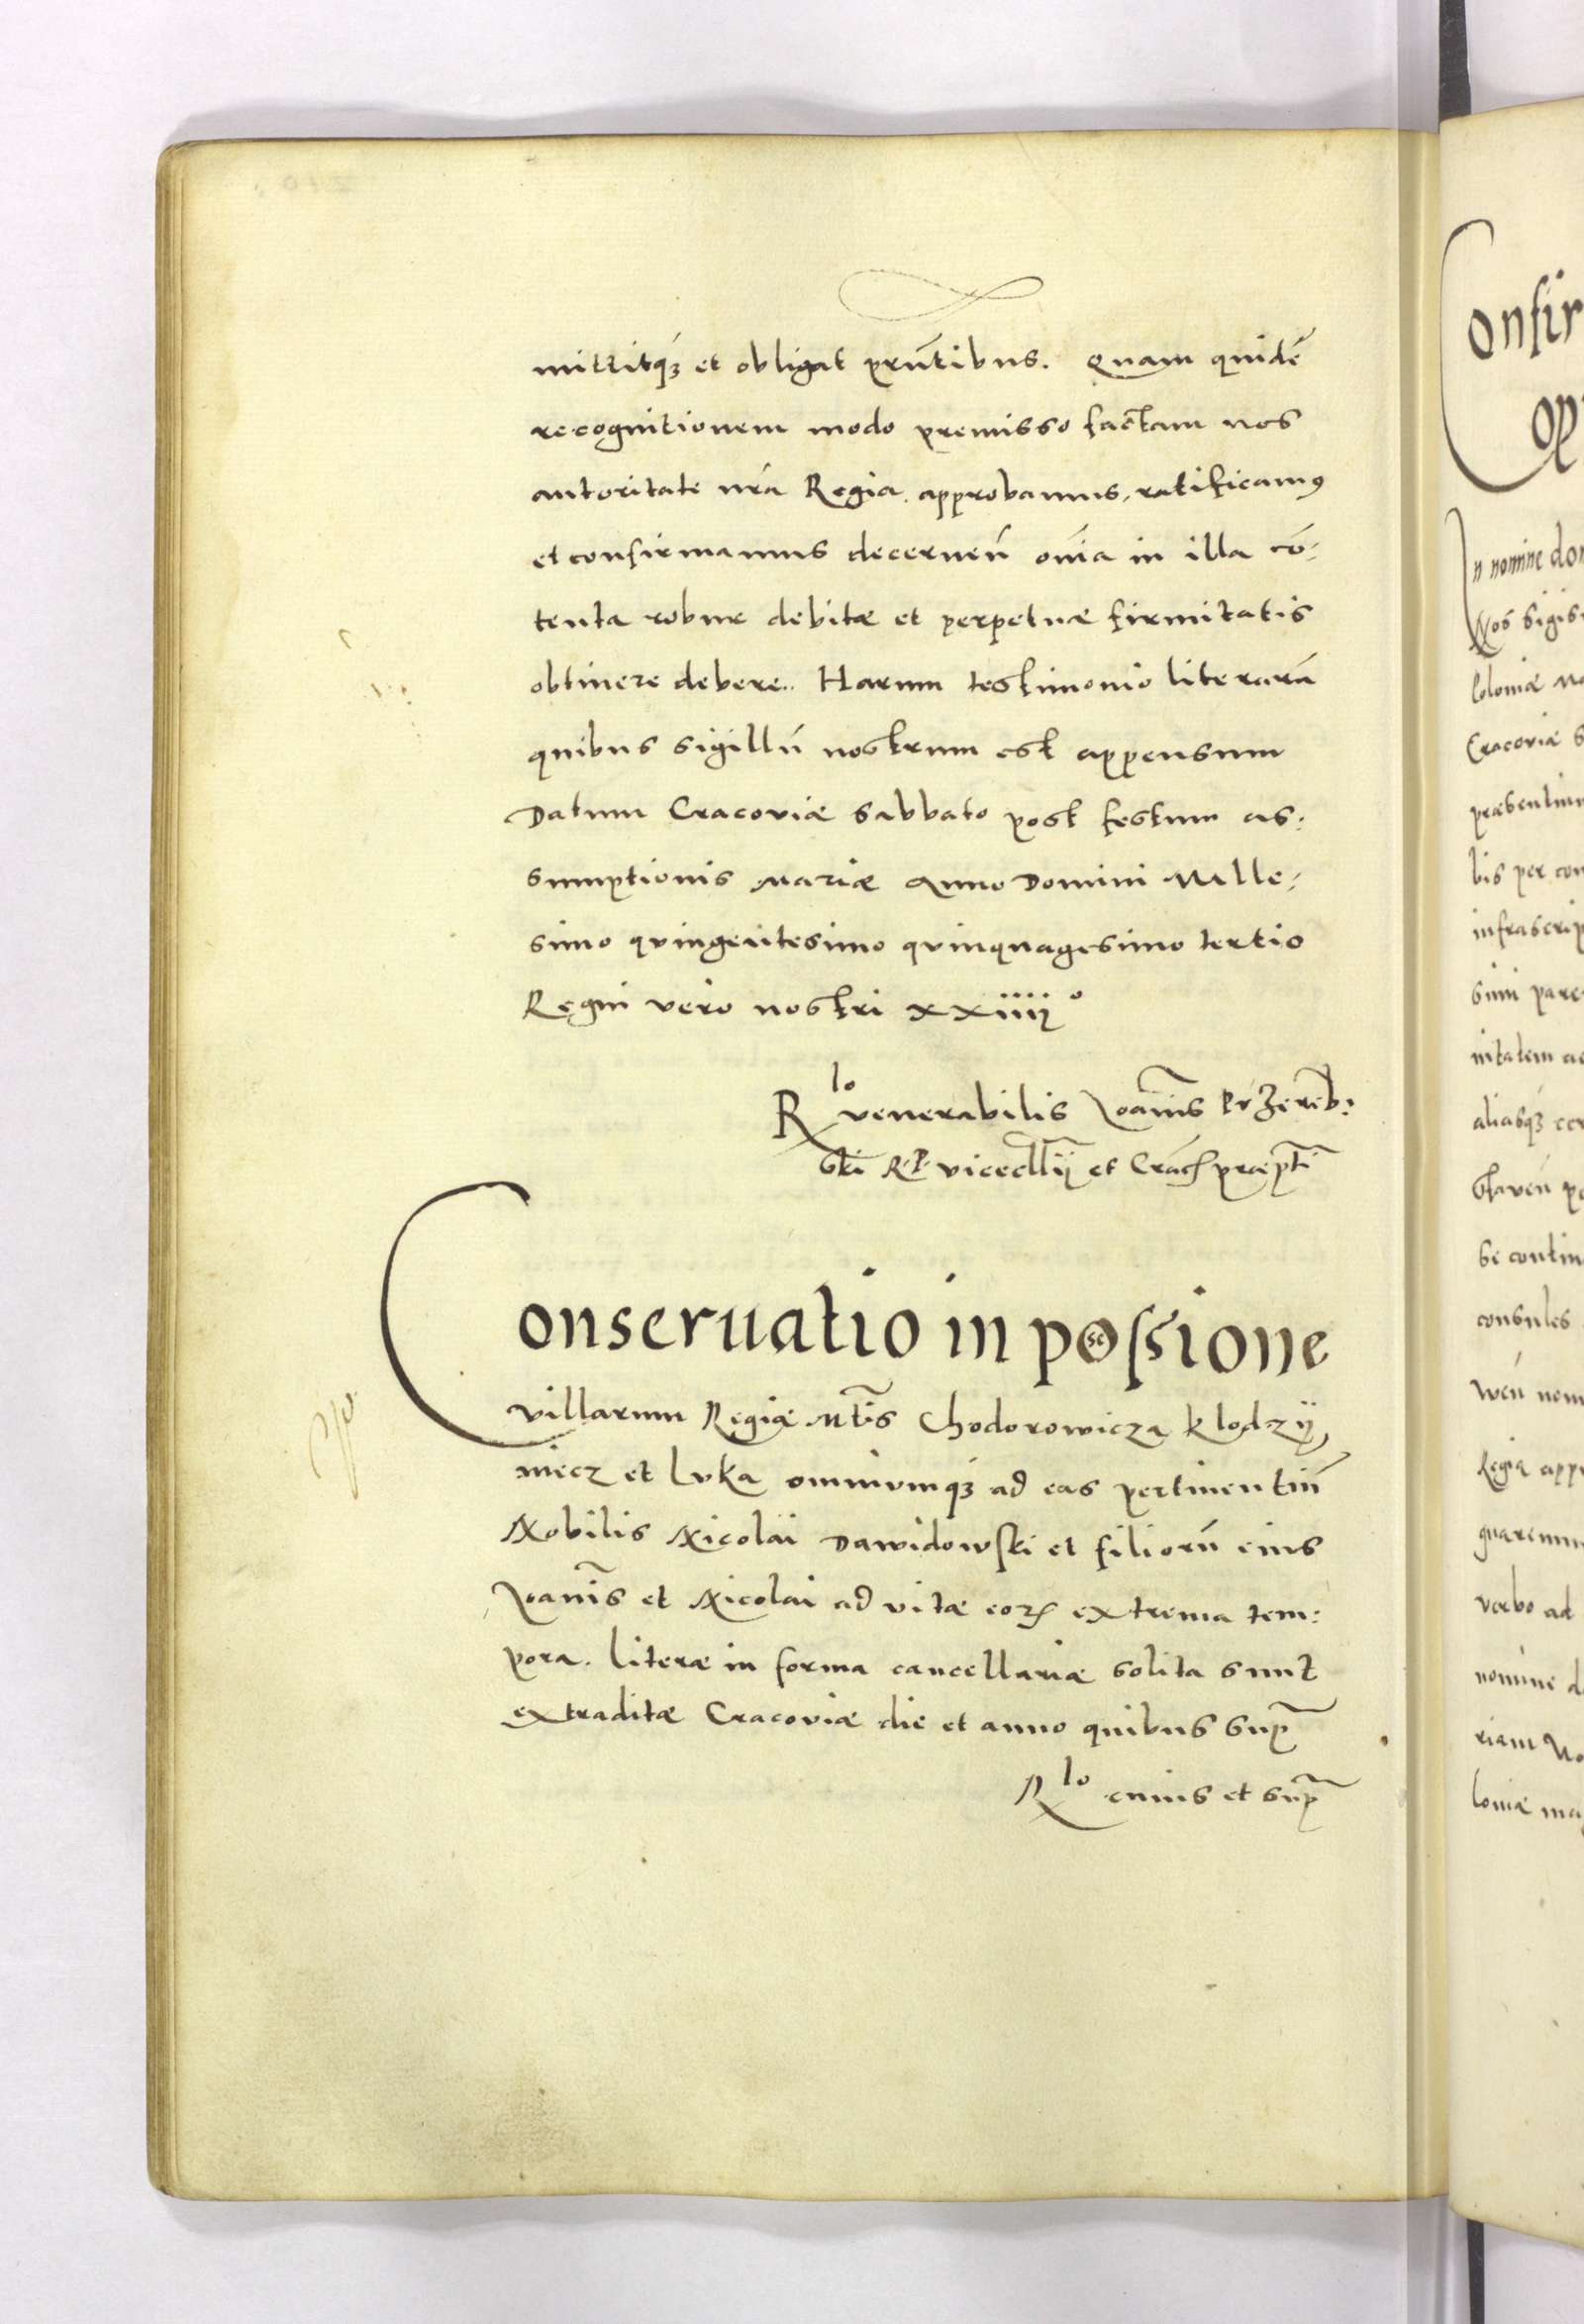 mittitq́ꝫ et obligat pr̃ntibus. Quam quidẽ
recognitionem modo premisso factam nos
autoritate nr̃a Regia approbamus, ratificamꝰ
et confirmamus decerneñ om̃ia in illa cõ:
tenta robur debitæ et perpetuæ firmitatis
obtinere debere. Harum testimonio literarũ
quibus sigillũ nostrum est appensum
Datum Cracoviæ Sabbato post festum as:
sumptionis Mariæ Anno Domini Mille:
simo quingentesimo quinquagesimo tertio
Regni vero nostri xxiiij°
R^lo venerabilis Joañis Przeremb:
ski R. P. vicecllr̃ij et Crac̃ præptĩ
Conseruatio in possessione
villarum Regiæ Mt̃is Chodorowicza Klodzÿ
niecz et Luka omniumq́ꝫ ad eas pertinentiũ
Nobilis Nicolai Dawidowski et filiorũ eius
Joañis et Nicolai ad vitæ eoꝝ extrema tem:
pora. Literæ in forma cancellariæ solita sunt
extraditæ Cracoviæ die et anno quibus supꝛ̃
R^lo cuius et supꝛ̃
onfir
op
In nomine do
Nos Sigis
Poloniæ Ma
Cracoviæ S
præsentium
bis per con
infrascrip
simi pare
nitatem ac
aliasq́ꝫ
se contin
consules
nom
Regia app
verbo ad
nomine d
riam No
loniæ ma